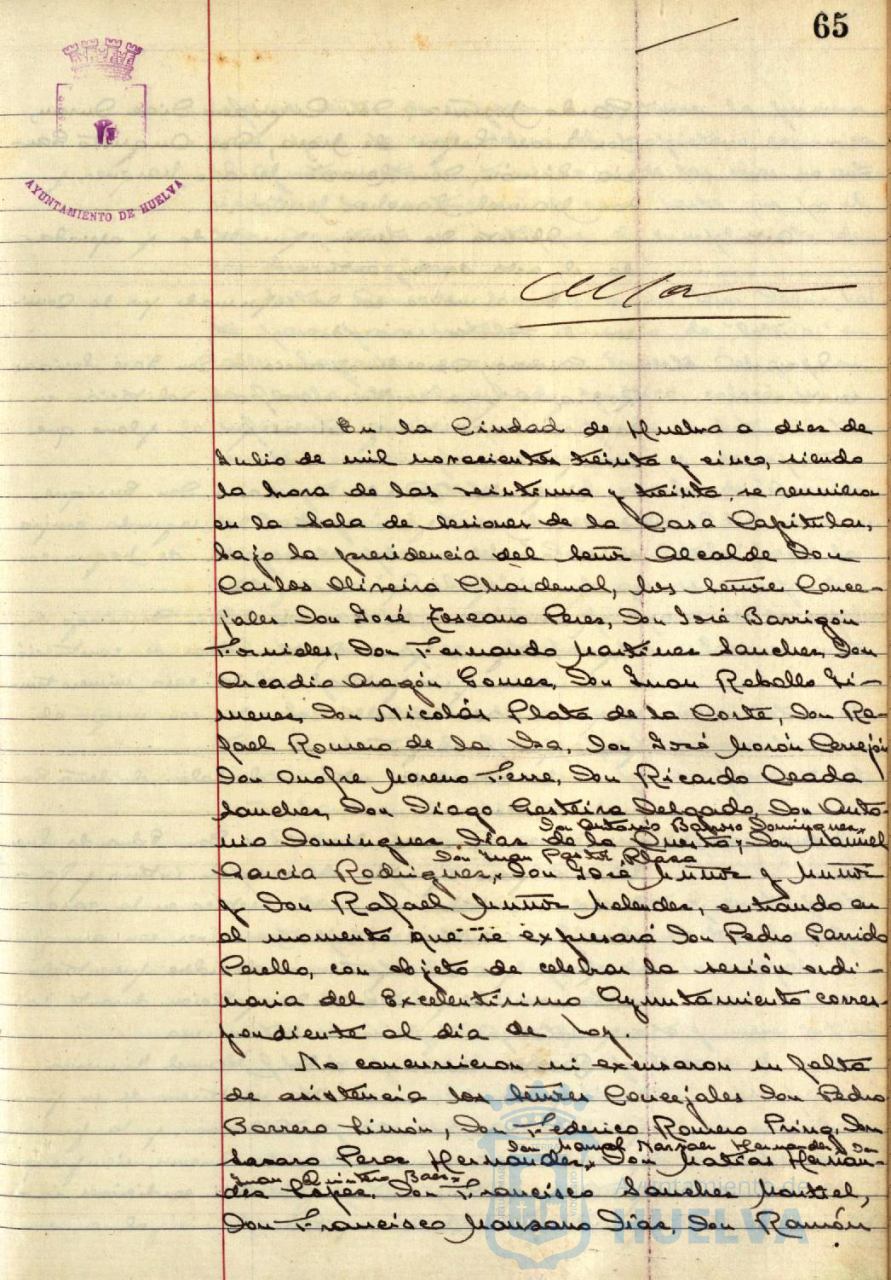 65
AYUNTAMIENTO DE HUELVA
En la Ciudad de Huelva a diez de
Julio de mil novecientos treinta y cinco, siendo
la hora de las veintiuna y treinta, se reunieron
en la Sala de Sesiones de la Casa Capitular,
bajo la presidencia del Señor Alcalde Don
Carlos Oliveira Chardenal, los Señores Conce-
jales Don José Toscano Perez, Don José Barrigón
Fornieles, Don Fernando Martinez Sanchez, Don
Arcadio Aragón Gomez, Don Juan Rebollo Ji-
menez, Don Nicolás Plata de la Corte, Don Ra-
fael Romero de la Isa, Don José Morón Cerrejón
Don Onofre Moreno Ferre, Don Ricardo Ceada
Sanchez, Don Diego Delgado, Don Anto-
Don Antonio Domínguez,
nio Dominguez Diaz de la Don Manuel
Don Juan Plaza
Garcia Rodriguez, Don José Muñoz y Muñoz
y Don Rafael Muñoz Melendez, entrando en
el momento que se expresará Don Pedro Garrido
Perello, con objeto de celebrar la sesión ordi-
naria del Excelentísimo Ayuntamiento corres-
pondiente al dia de hoy.
No concurrieron ni excusaron su falta
de asistencia los Señores Concejales Don Pedro
Barrero Limón, Don Federico Romero Don
Don Manuel Narvaez Hernandez, Don
Lazaro Perez Hernandez, Don Matías Hernan-
Juan Quintero Baez
dez Lopez, Don Francisco Sanchez Montiel,
Don Francisco Manzano Diaz, Don Ramón
Ayuntamiento de
HUELVA